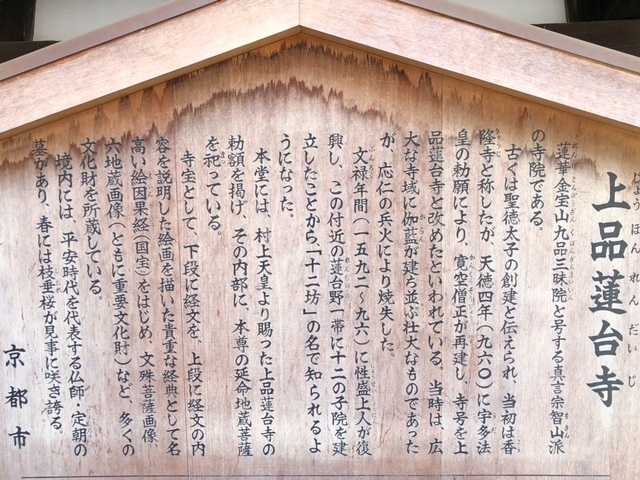 上品蓮台寺
じょうぼんれんだいじ
蓮華金宝山九品三昧院と号する真言宗智山派
の寺院である。
古くは聖徳太子の創建と伝えられ、当初は香
隆寺と称したが、天徳四年(九六〇)に宇多法
皇の勅願により、寛空僧正が再建し、寺号を上
品蓮台寺と改めたといわれている。当時は、広
大な寺域に伽藍が建ち並ぶ壮大なものであった
が、応仁の兵火により焼失した。
文禄年間(一五九二〜九六)に性盛上人が復
興し、この付近の蓮台野一帯に十二の子院を建
立したことから、「十二坊」の名で知られるよ
うになった。
本堂には、村上天皇より賜った上品蓮台寺の
勅額を掲げ、その内部に、本尊の延命地蔵菩薩
を祀っている。
寺宝として、下段に経文を、上段に経文の内
容を説明した絵画を描いた貴重な経典として名
高い絵因果経(国宝)をはじめ、文殊菩薩画像、
六地蔵画像(ともに重要文化財)など、多くの
文化財を所蔵している。
境内には、平安時代を代表する仏師・定朝の
墓があり、春には枝垂桜が見事に咲き誇る。
京都市